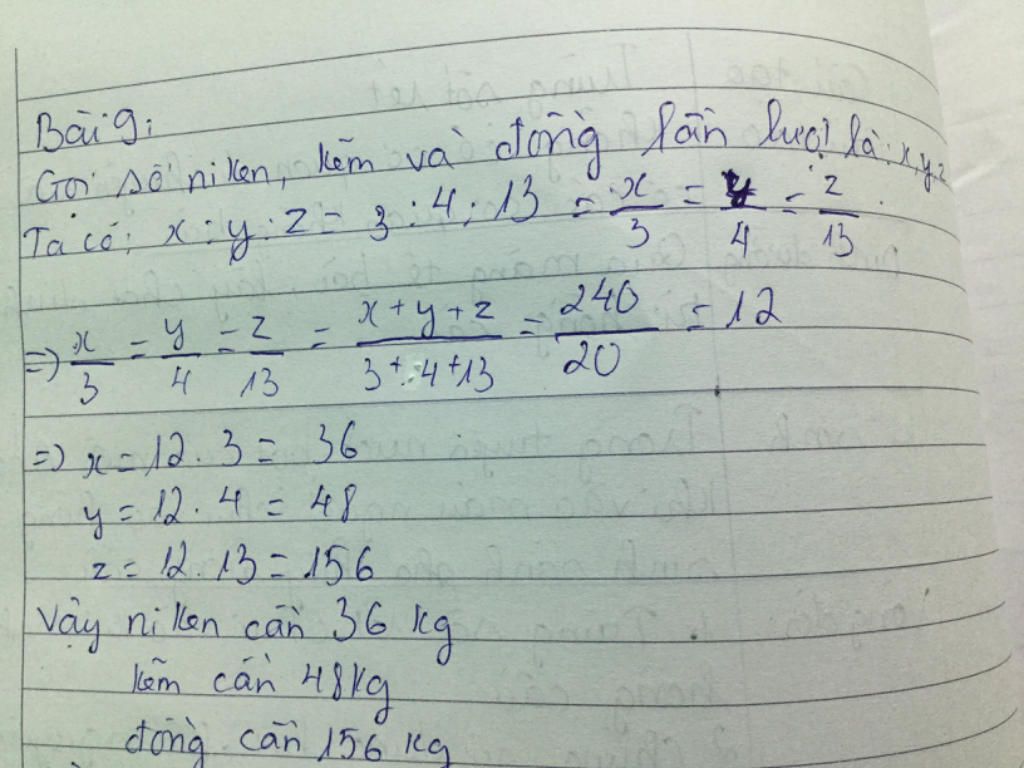 Bài 9:
Gọi số niken, kẽm và đồng lần lượt là: x, y, z
Ta có: x : y : z = 3 : 4 : 13 = x/3 = y/4 = z/13
=> x/3 = y/4 = z/13 = (x + y + z)/(3 + 4 + 13) = 240/20 = 12
=> x = 12 . 3 = 36
y = 12 . 4 = 48
z = 12 . 13 = 156
Vậy niken cần 36 kg
kẽm cần 48kg
đồng cần 156 kg